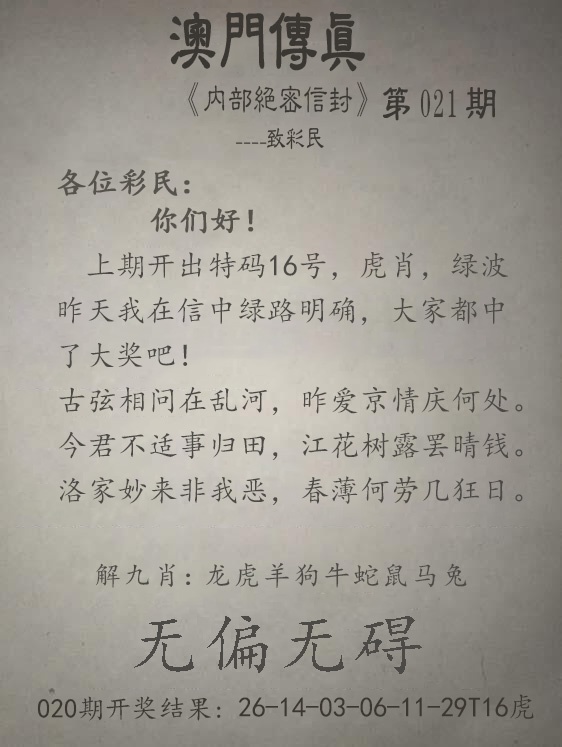 澳門傳真
《内部絕密信封》第021期
----致彩民
各位彩民：
你们好！
上期开出特码16号，虎肖，绿波
昨天我在信中绿路明确，大家都中
了大奖吧！
古弦相问在乱河，昨爱京情庆何处。
今君不适事归田，江花树露罢晴钱。
洛家妙来非我恶，春薄何劳几狂日。
解九肖：龙虎羊狗牛蛇鼠马兔
无偏无碍
020期开奖结果：26-14-03-06-11-29T16虎